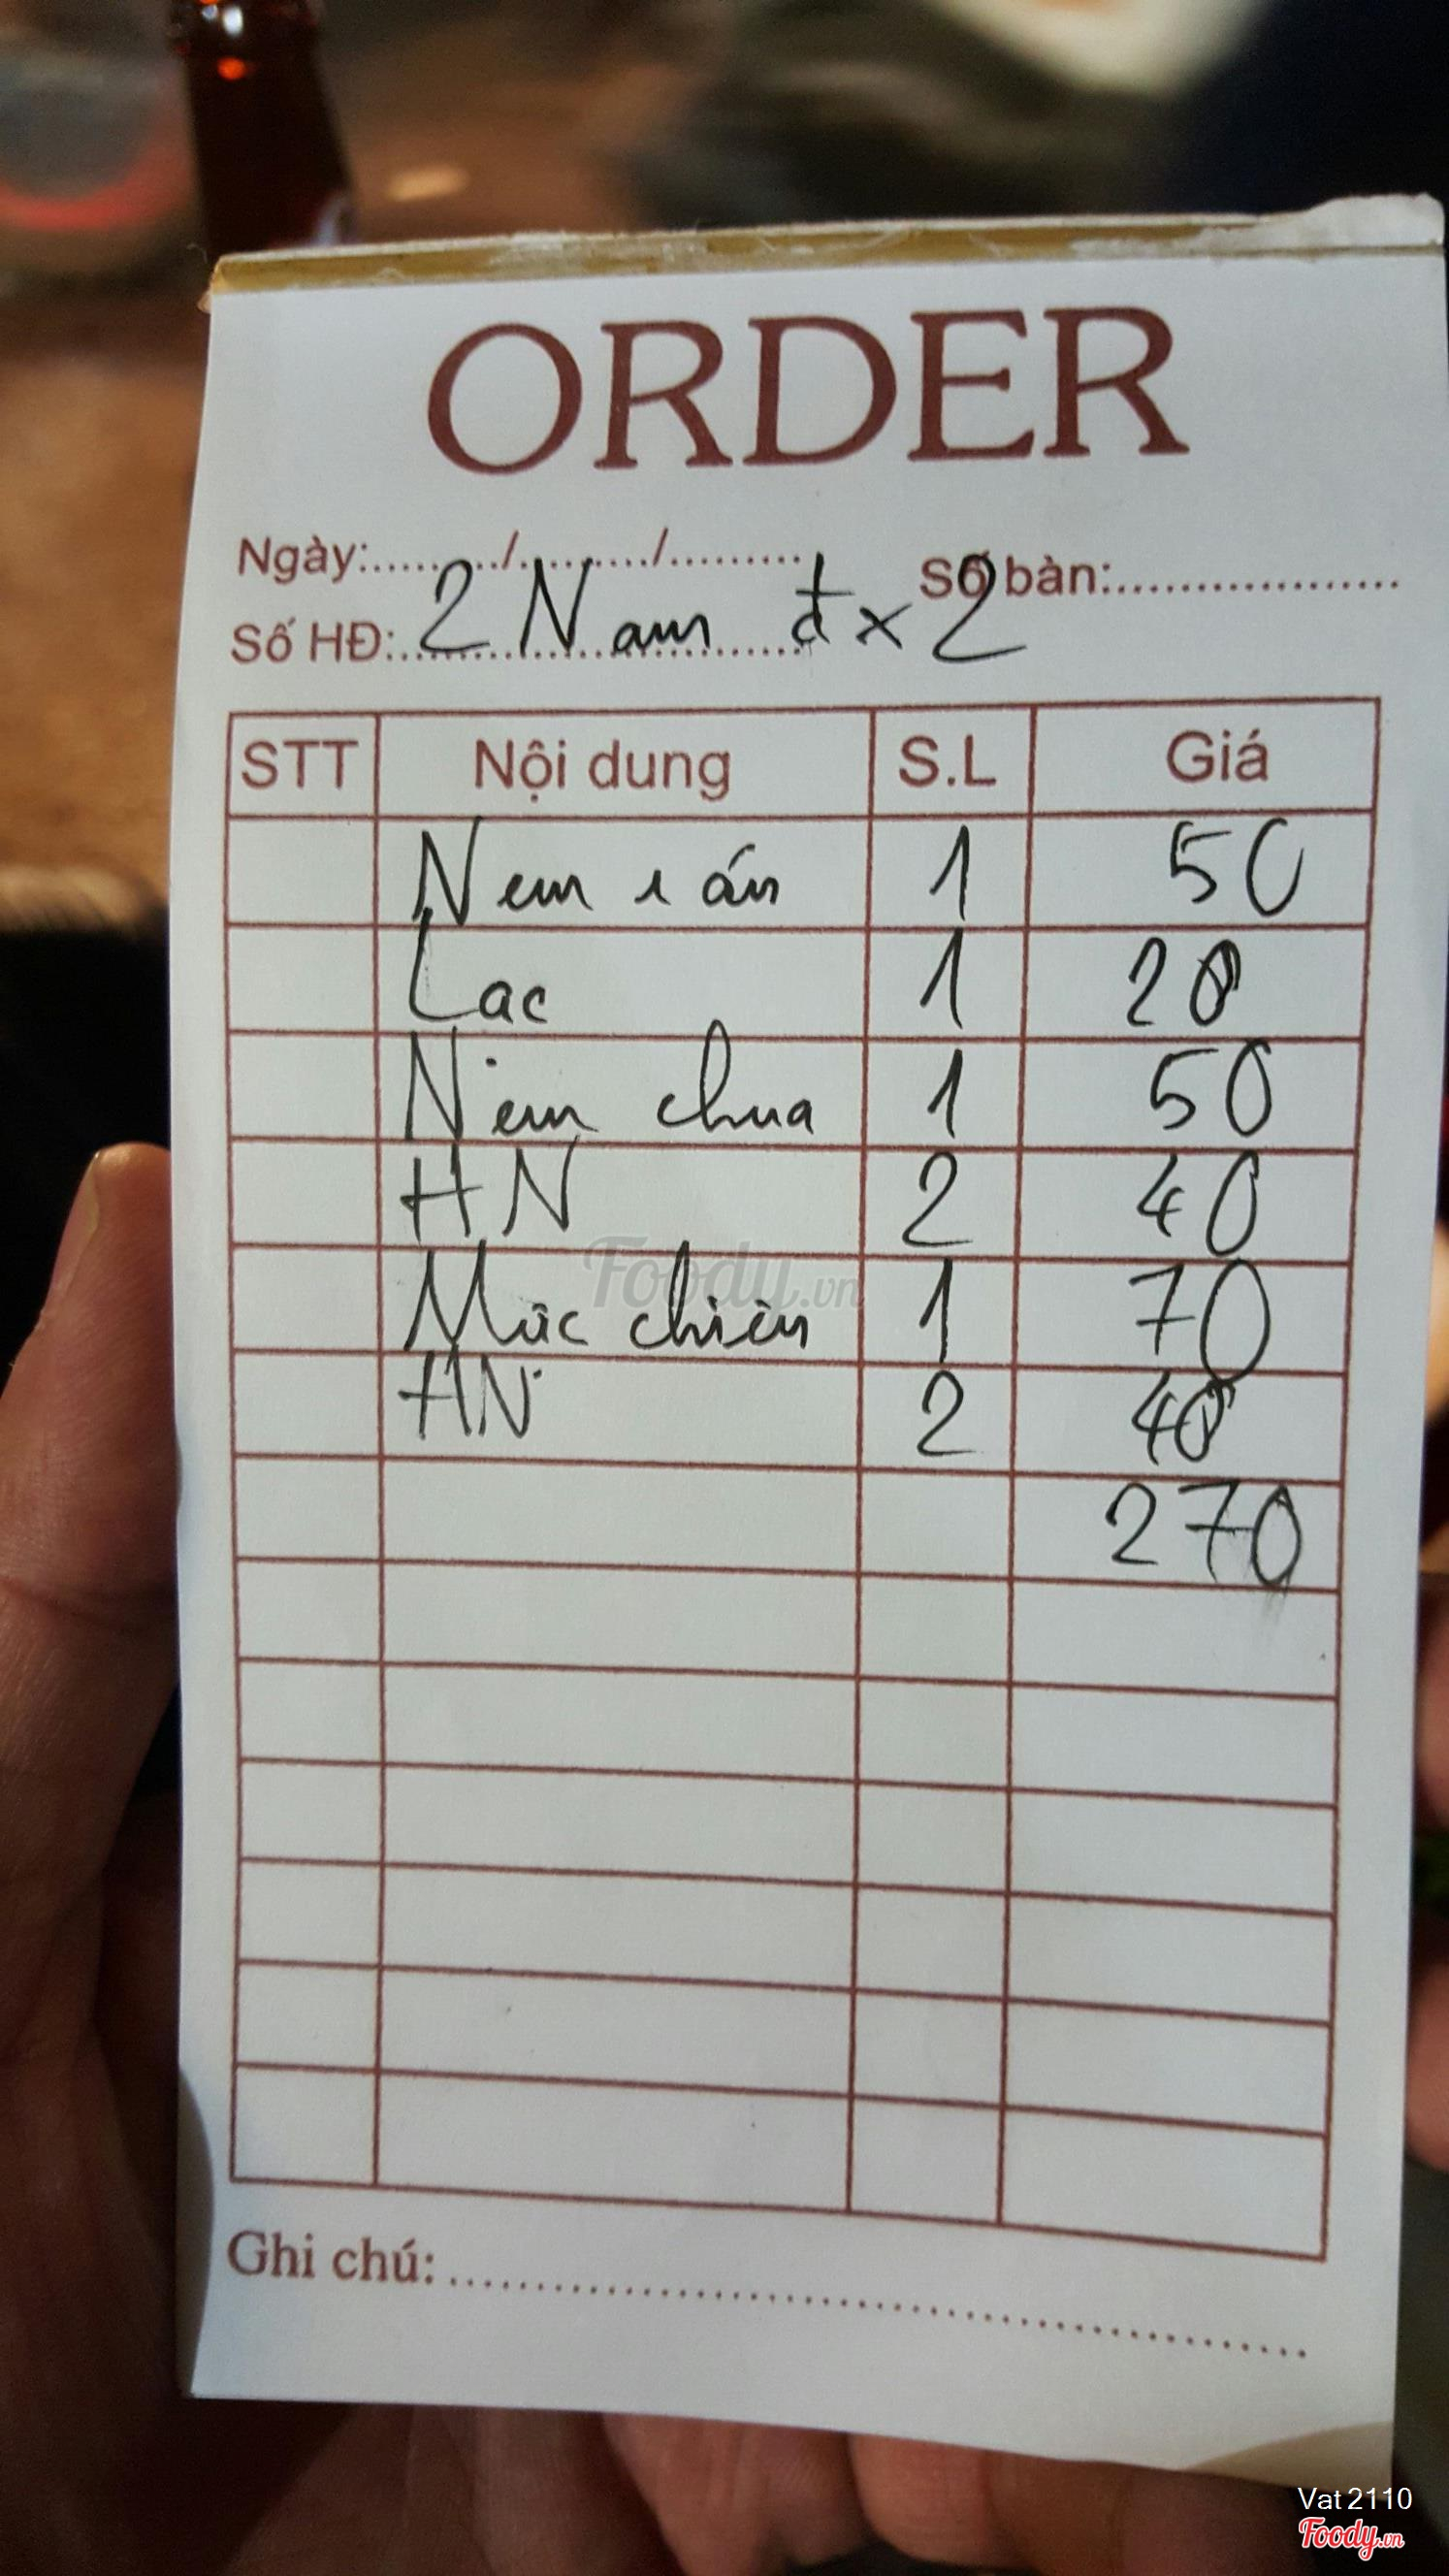 ORDER
Ngày:......../........./......... Số bàn:...................
Số HĐ: 2 Nam đ x 2
STT Nội dung S.L Giá
Nem rán 1 50
Lac 1 20
Nem chua 1 50
HN 2 40
Mực chiên 1 70
HN 2 40
270
Ghi chú:
Foody.vn
Vat2110
Foody.vn